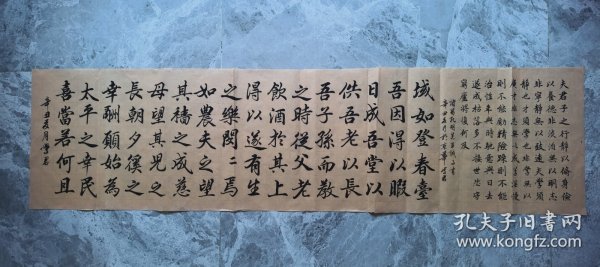 夫君子之行静以脩身儉
以養德非淡泊無以明志
非寧静無以致遠夫學須
静也才須學也非學無以
廣才非志無以成學淫慢
則不能勵精險躁則不能
治性年與時馳意與日去
遂成枯落多不接世悲守
窮廬將復何及
域如登春臺
吾因得以暇
日成吾堂以
供吾老以長
吾子孫而教
之時從父老
飲酒於其上
得以遂有生
之樂閔二焉
如農夫之望
其穡之成慈
母望其兒之
長朝夕徯之
幸酬願始為
太平之幸民
喜當若何且
孔夫子旧书网
www.kongfz.com